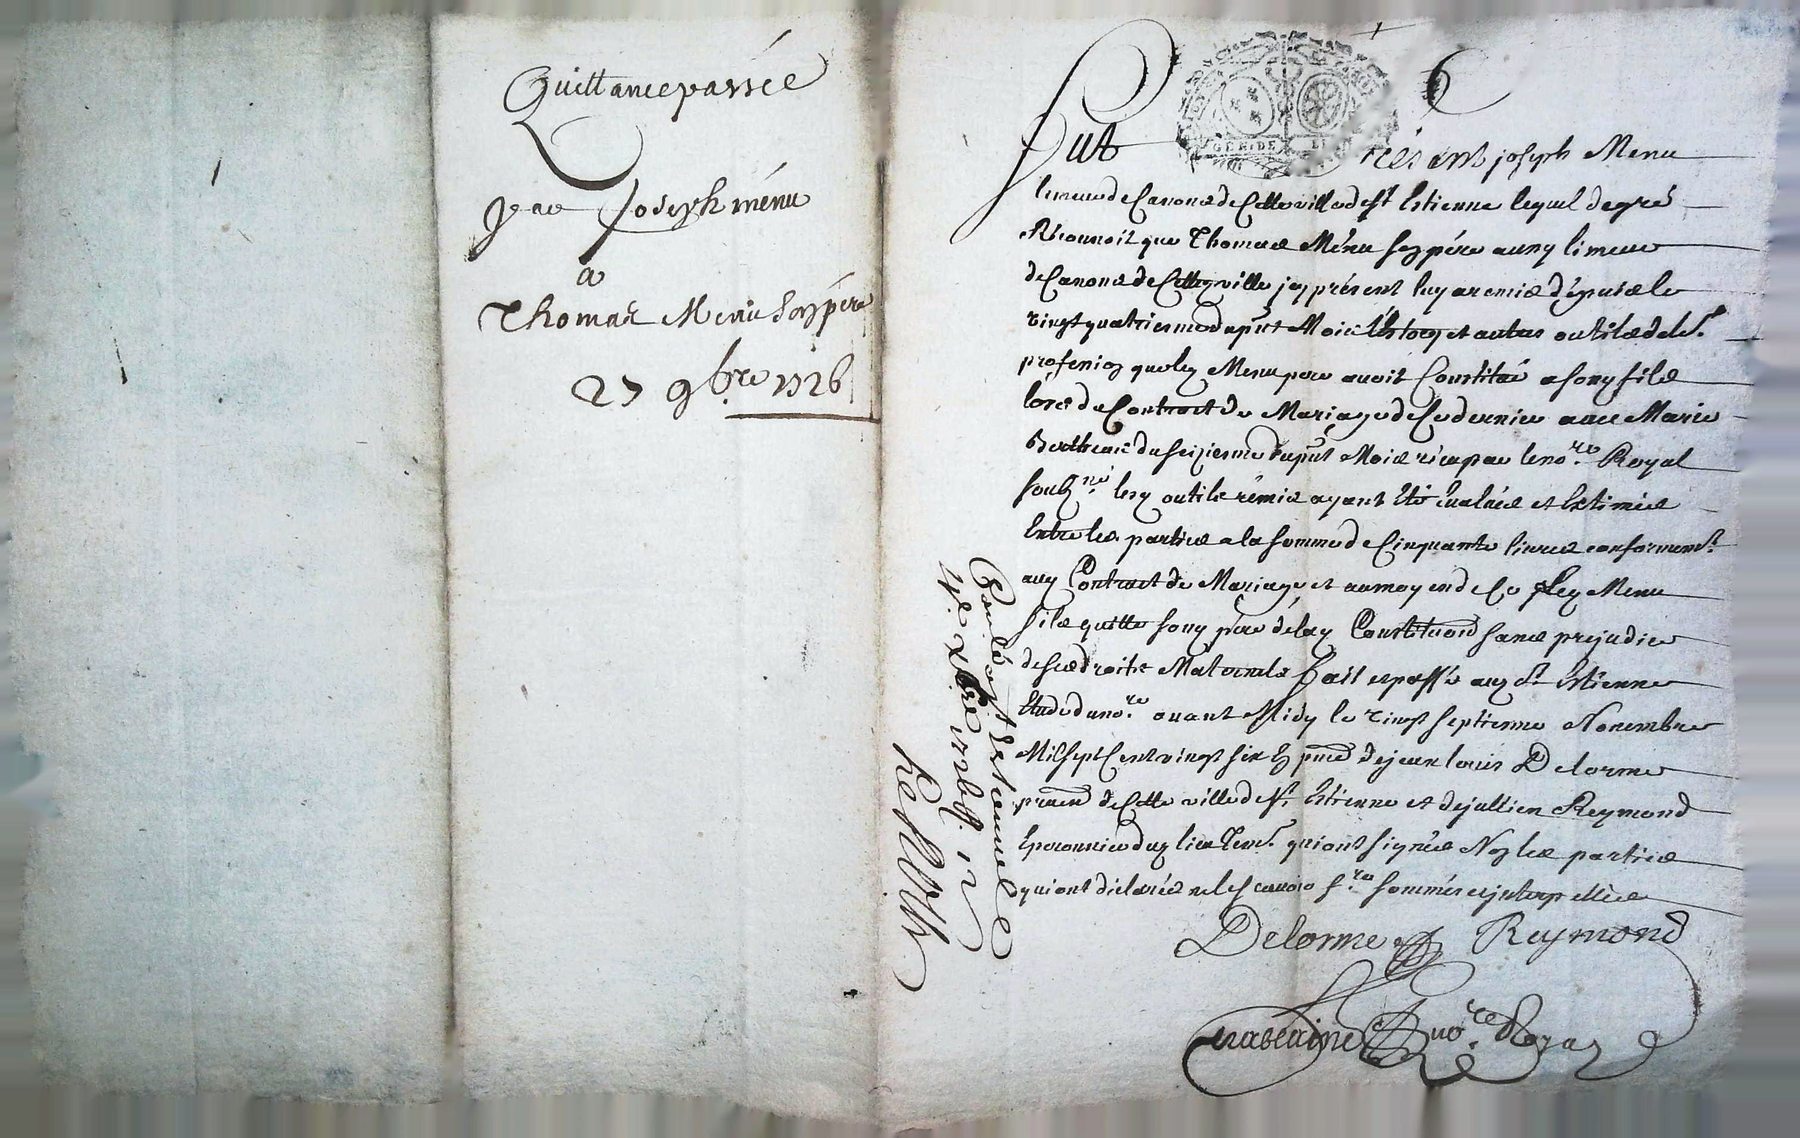 Quittance passée
par Joseph ménu
a
Thomas Menu son pere
27 9bre 1726
Fut présent joseph Menu
limeur de Canons de Cette ville de st Estienne lequel de gré
Réconnoit que Thomas Ménu son pére aussy limeur
de Canons de Cette ville icy présent luy a remis dépuis le
vingt quatriesme du pnt Mois Estocq et autres outils de de St
profession que led Menu pere avoit Constitué a son fils
lors du Contract de Mariage de Ce dernier avec Marie
du seiziesme du pnt Mois récu par le nore Royal
soubzné lesd outils rémis ayant Eté Evalués et Estimés
Entre les parties a la somme de Cinquante livres conformemt
aud Contract de Mariage et au moyen de Ce led Menu
fils quitte son pére de lad Constitution sans prejudice
de ses droits Maternels fait et passé aud St Estienne
Etude du nore avant Midy le vingt septieme Novembre
Mil sept Cent vingt six En pnce de jean louis Delorme
praen de Cette ville de St Estienne et de jullien Reymond
Eperonnier dud lieu Tems qui ont signés Non les parties
qui ont déclarés ne le scavoir fre sommés et interpellés
Delorme Reymond
nore Royal
Controlé a st Estienne le
1726